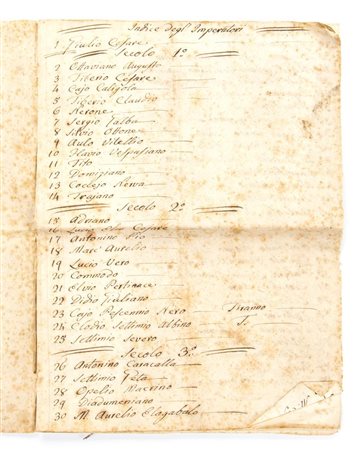 Indice degl' Imperatori
1 Giulio Cesare
Secolo 1º
2 Ottaviano Augusto
3 Tiberio Cesare
4 Cajo Caligola
5 Tiberio Claudio
6 Nerone
7 Sergio Galba
8 Silvio Ottone
9 Aulo Vitellio
10 Flavio Vespasiano
11 Tito
12 Domiziano
13 Coccejo Nerva
14 Trajano
Secolo 2º
15 Adriano
16 Lucio Elio Cesare
17 Antonino Pio
18 Marc' Aurelio
19 Lucio Vero
20 Commodo
21 Elvio Pertinace
22 Didio Giuliano
23 Cajo Pescennio Nero Tiranno
24 Clodio Settimio Albino
25 Settimio Severo
Secolo 3º
26 Antonino Caracalla
27 Settimio Geta
28 Opelio Macrino
29 Diadumeniano
30 M. Aurelio Elagabalo